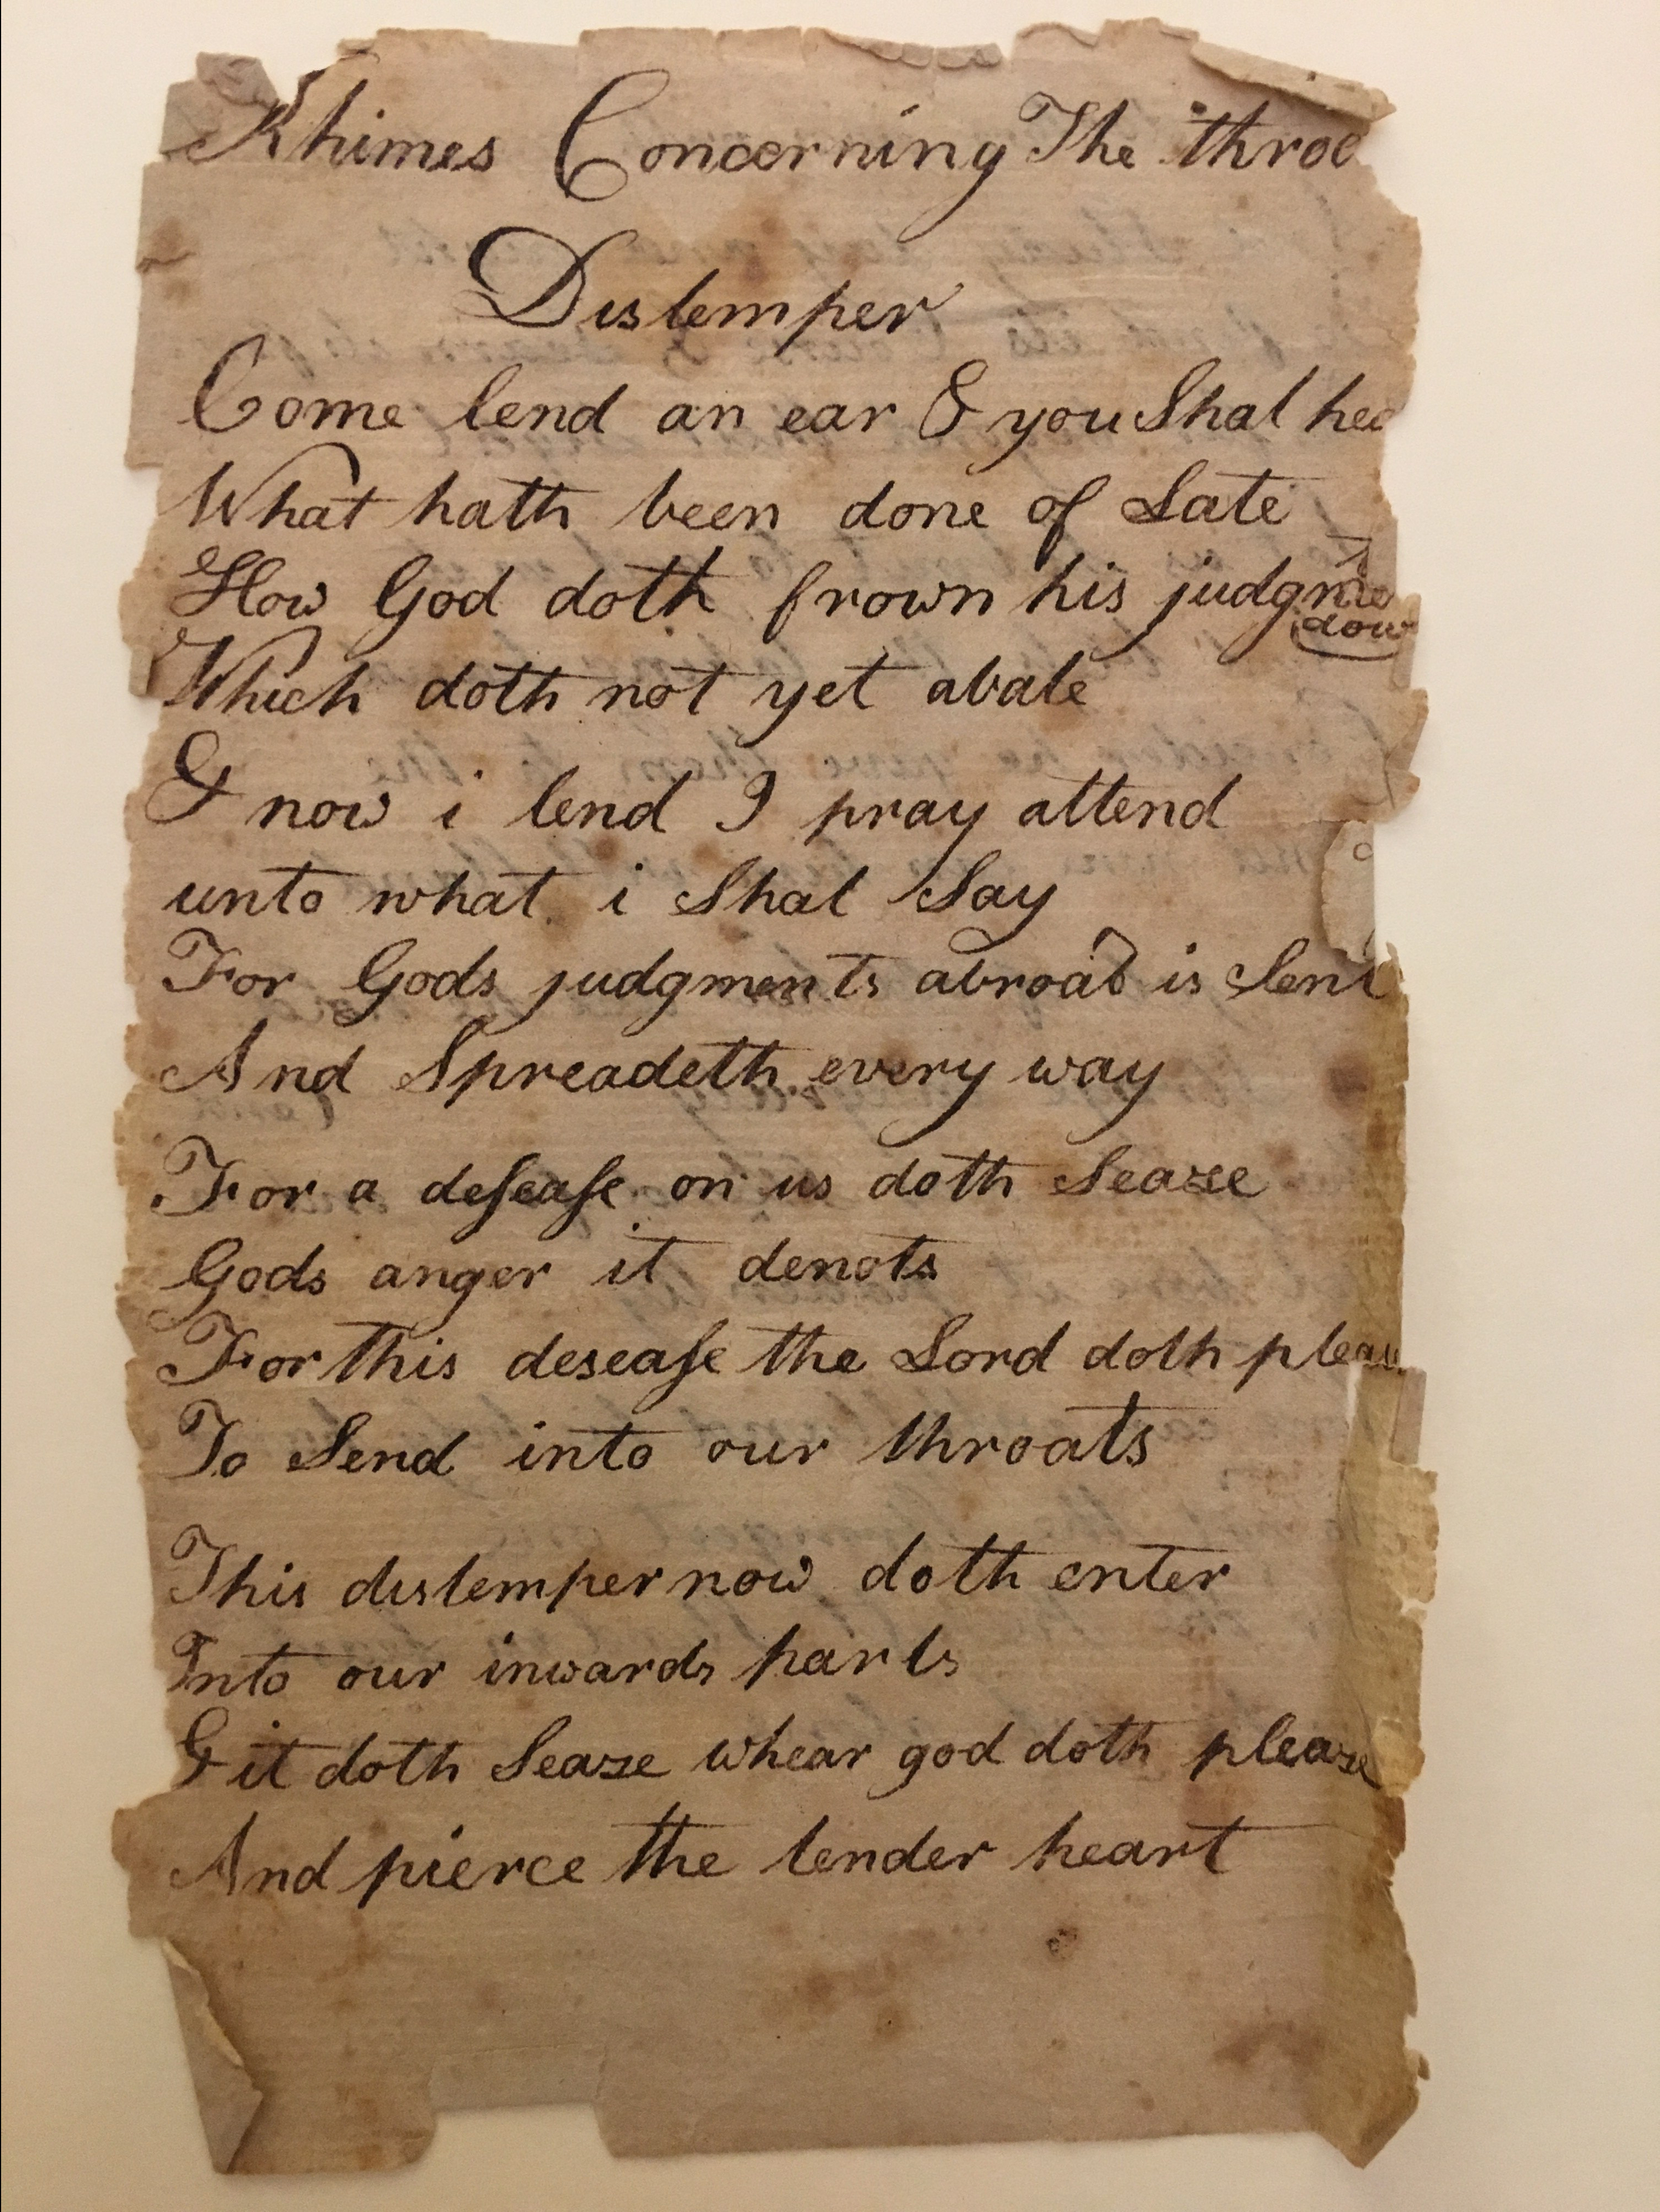 Rhimes Concerning The throe
Distemper
Come lend an ear & you Shal hea
What hath been done of Late
How God doth frown his judgme
dow
Which doth not yet abate
& now i lend I pray attend
unto what i Shal Say
For Gods judgments abroad is Sent
And Spreadeth every way
For a deſeaſe on us doth Seaze
Gods anger it denots
For this deseaſe the Lord doth pleas
To Send into our throats
This distemper now doth enter
Into our inwards parts
& it doth Seaze whear god doth pleaze
And pierce the tender heart